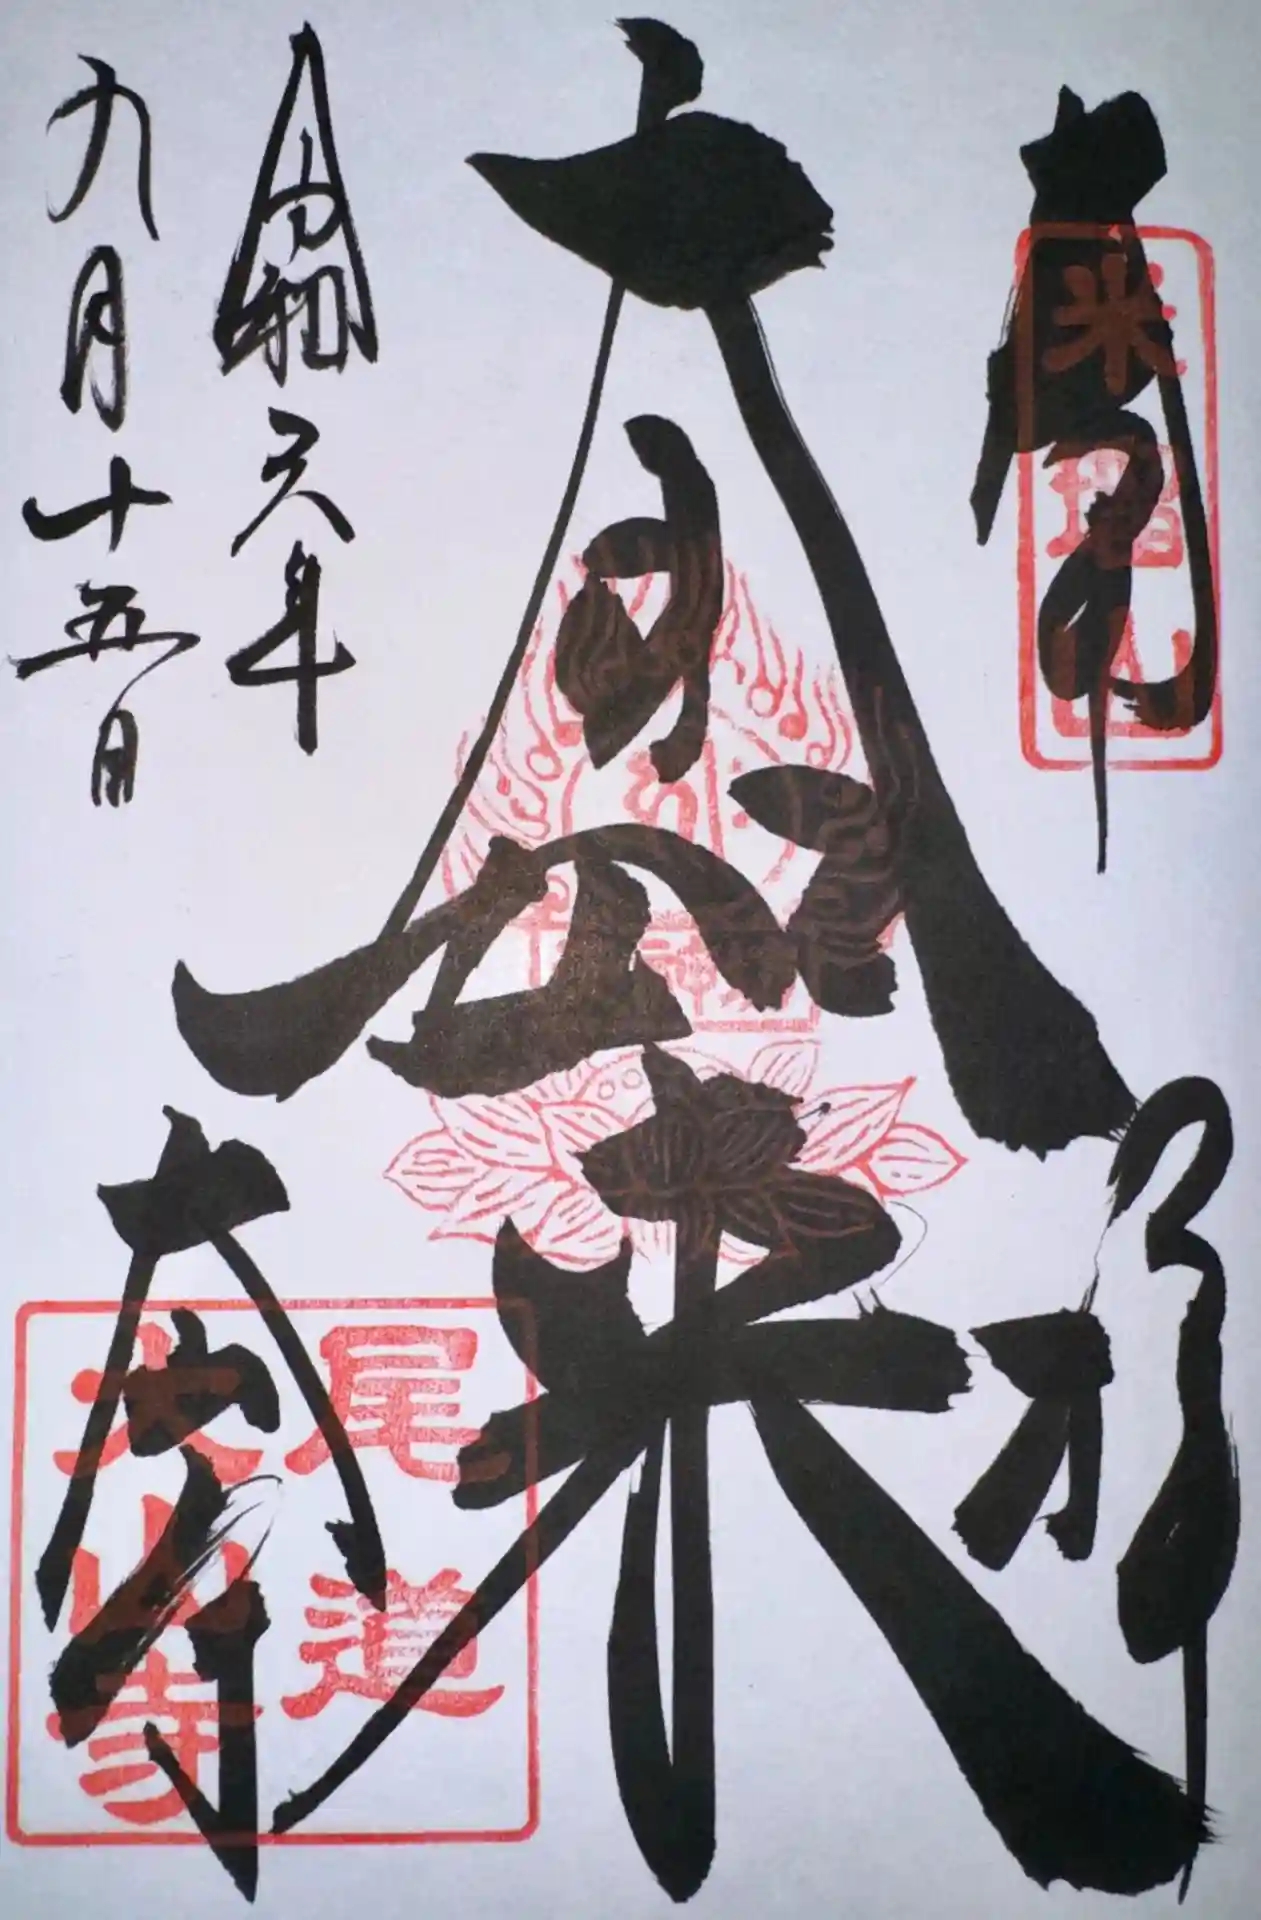 奉拝
大日如来
尾道
大山寺
大山寺
令和六年
九月十五日